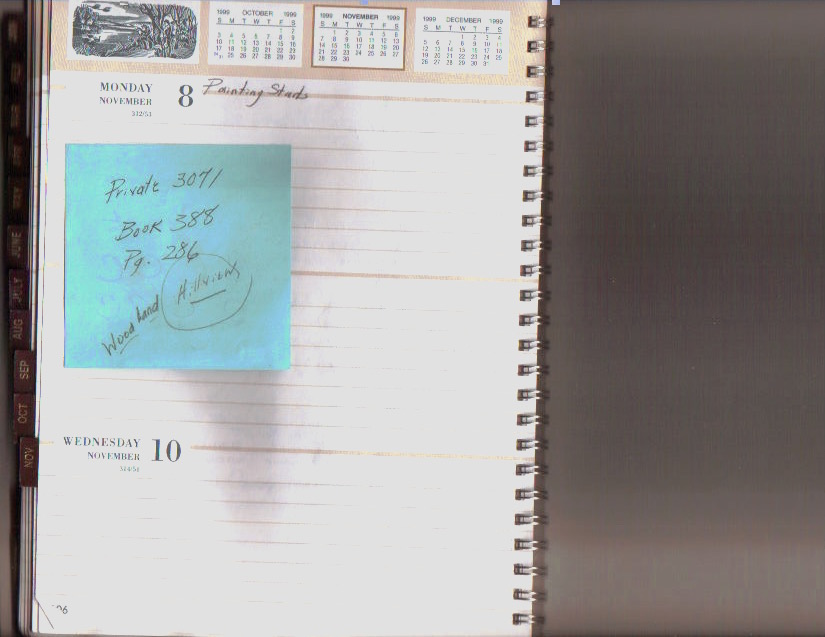 1999 OCTOBER 1999
S M T W T F S
1 2
3 4 5 6 7 8 9
10 11 12 13 14 15 16
17 18 19 20 21 22 23
25 26 27 28 29 30
1999 NOVEMBER 1999
S M T W T F S
1 2 3 4 5 6
7 8 9 10 11 12 13
14 15 16 17 18 19 20
21 22 23 24 25 26 27
28 29 30
1999 DECEMBER 1999
S M T W T F S
1 2 3 4
5 6 7 8 9 10 11
12 13 14 15 16 17 18
19 20 21 22 23 24 25
26 27 28 29 30 31
MONDAY 8 Painting Starts
NOVEMBER
312/53
Private 3071
Book 388
Pg. 286
Hillview
Woodland
WEDNESDAY 10
NOVEMBER
314/51
JUNE
JULY
AUG
SEP
OCT
NOV